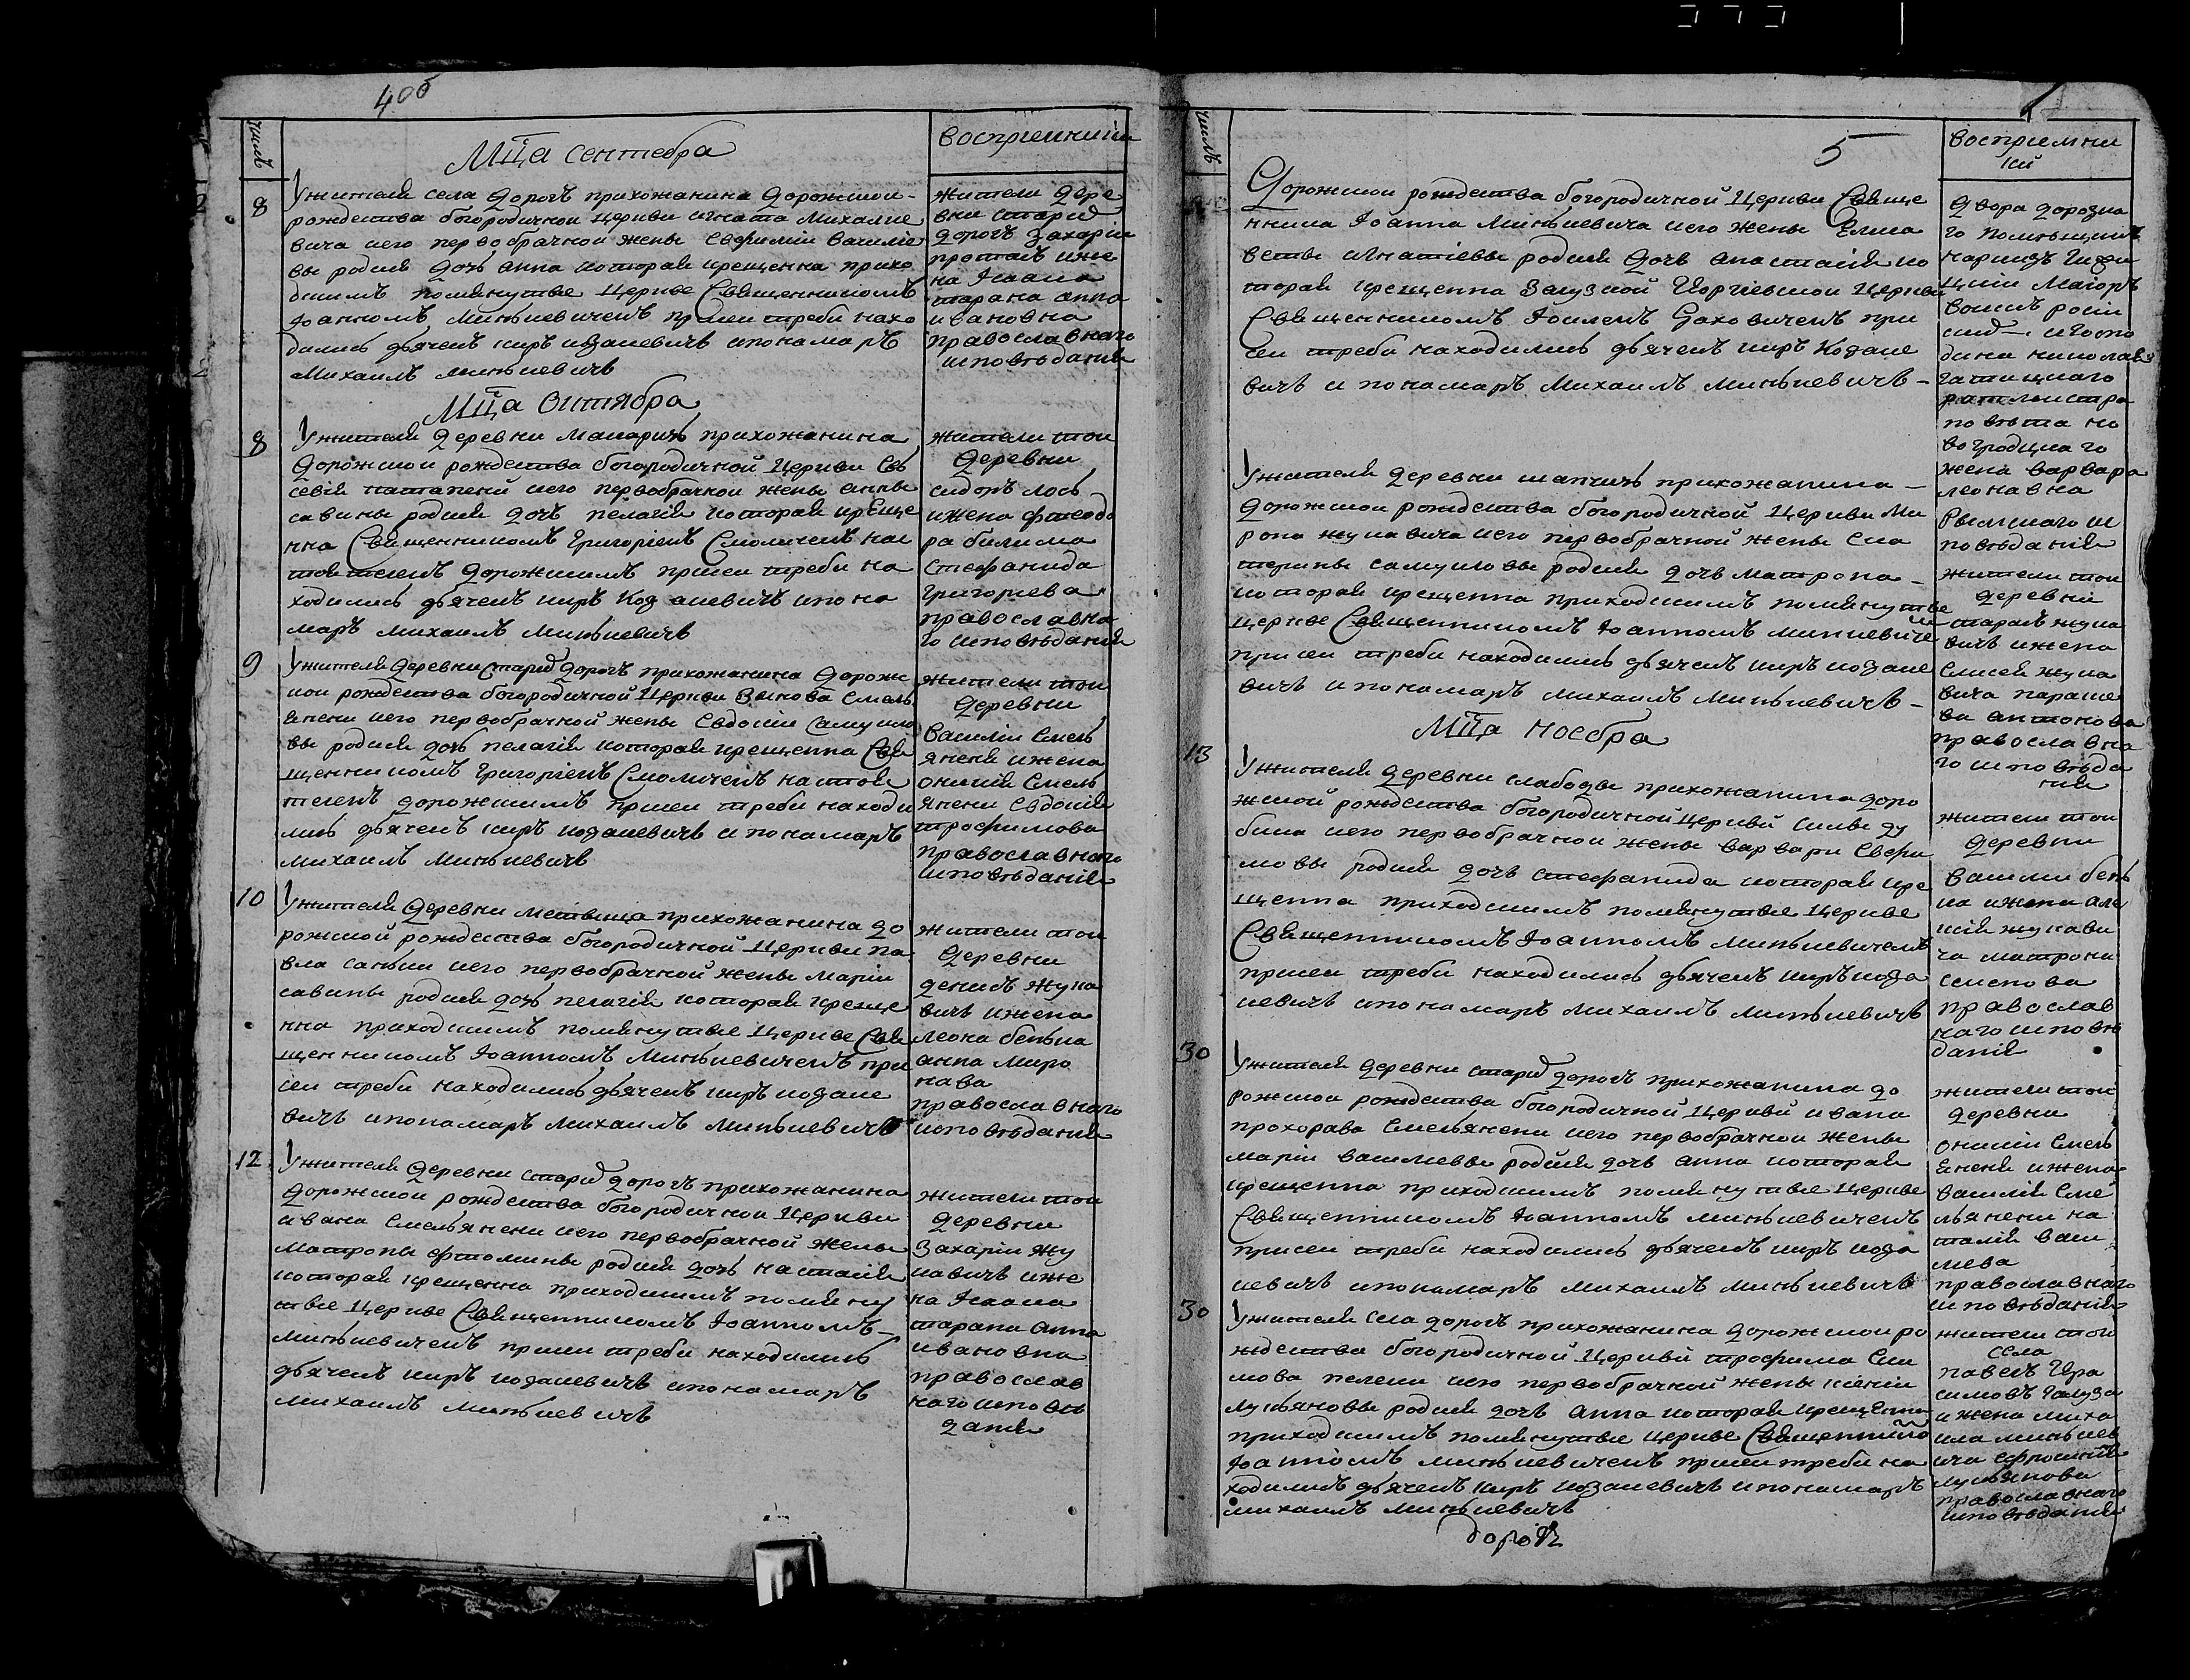 400
числъ
Мца сентебра
восприемники
8
У жителя села Дорогъ прихожанина Дорожскои
рождества богородичнои Церкви игната Михалке
вича иего первобрачнои жены Евфимии василие
вы родися дочь анна которая крещенна прихо
дскимъ помянутые Церкве Священникомъ
Иоанномъ Минкевичемъ при сеи требы нахо
дились дьячекъ киръ козакевичъ ипонамаръ
Михаилъ минкевичъ
жители дере
вни старыхъ
дорогъ Захарии
иже
на Исаака
тарана анна
ивановна
православнаго
исповѣдания
Мца Октября
8
У жителя Деревни Макаричъ прихожанина
Дорожскои рождества богородичной Церкви Ев
севия иего первобрачнои жены анны
савины родися дочь пелагия которая креще
нна Священникомъ Григориемъ Смоличемъ нас
тоятелемъ дорожскимъ присеи требы на
ходились дьячекъ киръ Козакевичъ ипона
маръ михаилъ Минкевичъ
жители тои
Деревни
сидоръ лось
ижена феодо
ра
стефанида
григориева
православна
го исповѣдания
9
У жителя Деревни Старыхъ дорогъ прихожанина Дорожс
кои рождества богородичной Церкви Зинова Емель
янени иего первобрачной жены Евдокии самуило
вы родися дочь пелагия которая крещенна Свя
щенникомъ Григориемъ Смоличемъ настоя
телемъ дорожскимъ присеи требы находи
лись дьячекъ киръ козакевичъ ипонамаръ
михаилъ минкевичъ
жители тои
Деревни
василии Емель
яненя ижена
онисия Емель
янени Евдокия
трофимова
православнаго
исповѣдания
10
У жителя Деревни прихожанина до
рожской рождества богородичной Церкви па
вла иего первобрачной жены Марии
савины родися дочь пелагия которая креще
нна приходскимъ помянутые Церкве Свя
щенникомъ Иоанномъ Минкевичемъ при
сеи требы находились дьячекъ киръ козаке
вичъ ипонамаръ михаилъ минкевичъ
жители тои
Деревни
денисъ жука
вичъ ижена
леона
анна миро
нава
православнаго
исповѣдания
12
У жителя Деревни старыхъ дорогъ прихожанина
Дорожскои рождества богородичнои Церкви
ивана Емельянени иего первобрачной жены
матроны фтомины родися дочь настасия
которая крещенна приходскимъ помяну
тые Церкве Священникомъ Иоанномъ
минкевичемъ присеи требы находились
дьячекъ киръ козакевичъ ипонамаръ
михаилъ минкевичъ
жители тои
Деревни
Захарии жу
кавичъ иже
на Исаака
тарана анна
ивановна
православ
наго исповѣ
дания
числъ
5
восприемни
ки
Дорожскои рождества богородичной Церкви Свяще
нника Иоанна Минкевича иего жены Елиса
веты игнатиевы родися дочь анастасия ко
торая крещенна Георгиевской Церкви
Священникомъ при
сеи требы находились дьячекъ киръ Козаке
вичъ и понамаръ Михаилъ Минкевичъ
двора дорозка
го помѣщикъ
Маиоръ
воискъ росси
игоспо
дина николая
ротмистра
повѣта но
вогродцкаго
жена варвара
леонавна
Рымскаго ис
повѣдания
У жителя Деревни шапчичъ прихожанина
Дорожскои рождества богородичной Церкви Ми
рона жукавича иего первобрачной жены Ека
терины самуиловы родися дочь матрона
которая крещенна приходскимъ помянутые
Церкве Священникомъ Иоанномъ минкевиче
при сеи требы находились дьячекъ киръ козаке
вичъ ипонамаръ михаилъ Минкевичъ
жители тои
Деревни
тарасъ жука
вичъ ижена
Елисея жука
вича параске
ва антонова
православна
го исповѣда
ния
Мца Ноебра
13
У жителя Деревни слабоды прихожанина доро
жской рождества богородичной Церкви силы ду
бика иего первобрачнои жены варвары Евфи
мовы родися дочь стефанида которая кре
щенна приходскимъ помянутые Церкве
Священникомъ Иоанномъ Минкевичемъ
присеи требы находились дьячекъ киръ коза
кевичъ ипонамаръ Михаилъ минкевичъ
жители тои
Деревни
василии
ижена але
ксия жукави
ча матрона
семенова
православ
наго исповѣ
дания
30
У жителя Деревни старыхъ дорогъ прихожанина до
рожскои рождества богородичной Церкви ивана
прохорава Емельянени иего первобрачнои жены
марии василиевы родися дочь анна которая
крещенна приходскимъ помянутые Церкве
Священникомъ Иоанномъ минкевичемъ
присеи требы находились дьячекъ киръ коза
кевичъ ипонамаръ михаилъ минкевичъ
жители тои
Деревни
онисии Емель
яненя ижена
василия Еме
льянени на
талия васи
лиева
православнаго
исповѣдания
30
У жителя села дорогъ прихожанина Дорожскои ро
ждества богородичной Церкви трофима
иего первобрачной жены ксении
лукьяновы родися дочь анна которая крещенна
приходскимъ помянутые Церкве Священнико
Иоанномъ минкевичемъ присеи требы на
ходились дьячекъ киръ козакевичъ ипонамаръ
михаилъ минкевичъ
жители того
села
павелъ Гера
симовъ
ижена миха
ила минкев
ича
лукьянова
православнаго
исповѣдания